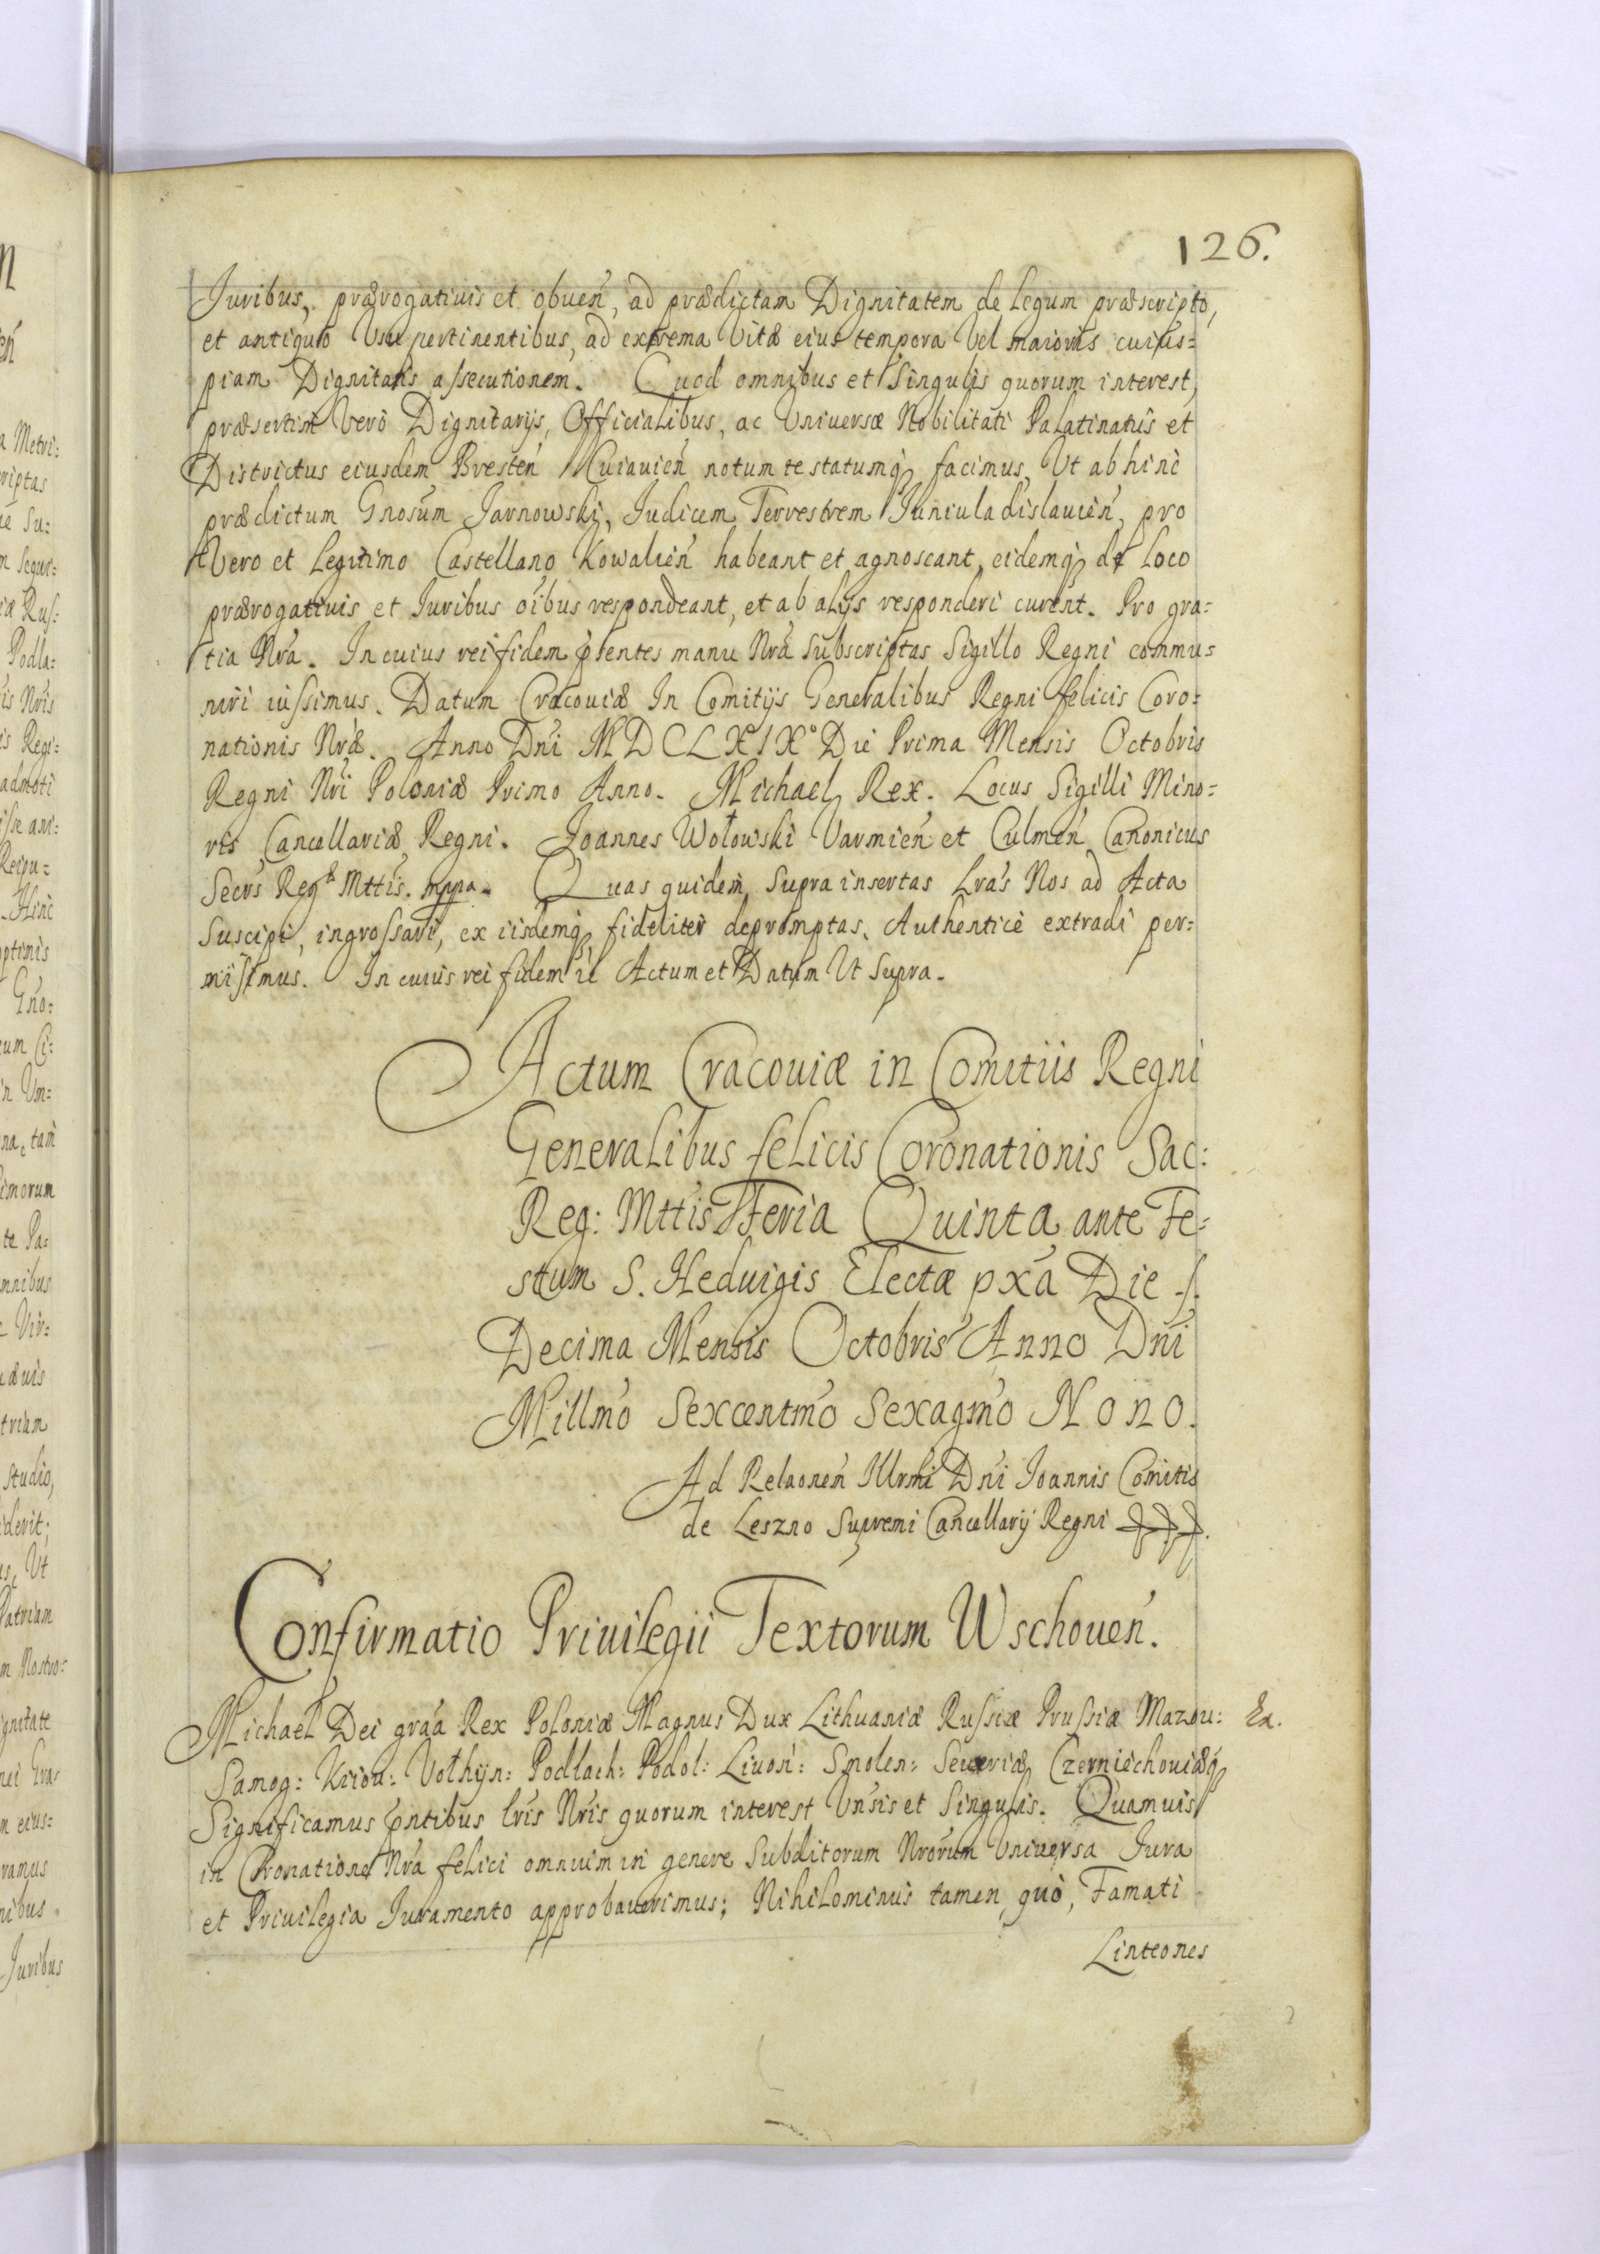 126.
Iuribus, prærogatiuis et obuen̄, ad prædictam Dignitatem de Legum præscripto,
et antiquo Usu pertinentibus, ad extrema Vitæ eius tempora Vel maioris cuius=
piam Dignitatis assecutionem. Quod omnibus et Singulis quorum interest,
præsertim Vero Dignitarijs, Officialibus, ac Universæ Nobilitati Palatinatûs et
Districtus eiusdem Bresten̄ Cuiauien̄ notum testatumq́ facimus, Ut ab hinc
prædictum Gnosum̄ Jarnowski, Judicem Terrestrem Juniuladislauien̄, pro
Vero et Legitimo Castellano Kowalien̄ habeant et agnoscant, eidemq́ de Loco
prærogatiuis et Iuribus oībus respondeant, et ab alijs responderi curent. Pro gra=
tia Nrā. In cuius rei fidem p̄sentes manu Nrā Subscriptas Sigillo Regni commu=
niri iussimus. Datum Cracouiæ In Comitijs Generalibus Regni felicis Coro=
nationis Nrǣ. Anno Dn̄i MDCLXIX° Die Prima Mensis Octobris
Regni Nrī Poloniæ Primo Anno. Michael Rex. Locus Sigilli Mino=
ris Cancellariæ Regni. Joannes Wołowski Varmien̄ et Culmen̄ Canonicus
Secrs̄ Regæ Mttis̄. mppa. Quas quidem Supra insertas Lrās Nos ad Acta
Suscipi, ingrossari, ex iisdemq́ fideliter depromptas, Authenticè extradi per=
misimus. In cuius rei fidem Actum et Datum Ut Supra.
Actum Cracouiæ in Comitiis Regni
Generalibus felicis Coronationis Sac:
Reg: Mttis̄ Feria Quinta ante Fe=
stum S. Heduigis Electæ pxā Die
Decima Mensis Octobris Anno Dn̄i
Millmō Sexcentmō Sexagmō Nono.
Ad Relaonen̄ Illrmi Dn̄i Joannis Comitis
de Leszno Supremi Cancellarij Regni
Confirmatio Priuilegii Textorum Wschouen̄.
Michael Dei graā Rex Poloniæ Magnus Dux Lithuaniæ Russiæ Prussiæ Mazou: Ex.
Samog: Kiiou: Volhijn: Podlach: Podol: Liuon: Smolen: Seueriæ Czerniechouiæq́
Significamus p̄ntibus Lrīs Nrīs quorum interest Vn̄sis et Singulis. Quamuis
in Coronatione Nrā felici omnium in genere Subditorum Nrōrum Universa Jura
et Priuilegia Iuramento approbauerimus; Nihilominus tamen, quò, Famati
Linteones